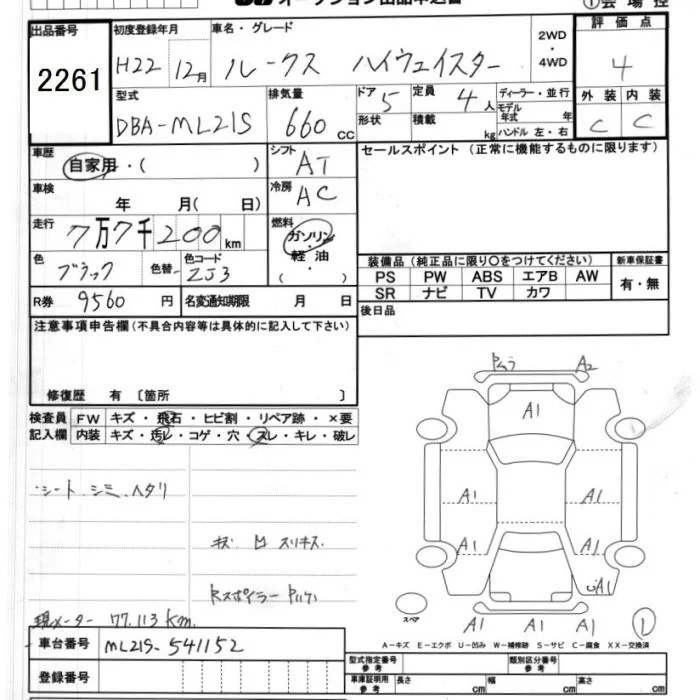 ①会場控
出品番号 2261
初度登録年月 H22 12月
車名・グレード ルークス ハイウェイスター
2WD・4WD
評価点 4
型式 DBA-ML21S
排気量 660cc
ドア 5 形状
定員 4人 積載 kg
ディーラー・並行
モデル年式 年
ハンドル 左・右
外装 C
内装 C
車歴 自家用・( )
シフト AT
セールスポイント (正常に機能するものに限ります)
車検 年 月( 日)
冷房 AC
走行 7万7千200km
燃料 ガソリン・軽油 ( )
色 ブラック
色替
色コード ZJ3
装備品(純正品に限り〇をつけてください)
PS PW ABS エアB AW
SR ナビ TV カワ
新車保証書 有・無
R券 9560円
名変通知期限 月 日
後日品
注意事項申告欄(不具合内容等は具体的に記入して下さい)
修復歴 有 〔箇所 〕
検査員記入欄
FW キズ・飛石・ヒビ割・リペア跡・×要
内装 キズ・汚レ・コゲ・穴・スレ・キレ・破レ
・シート シミ、ヘタリ
キズ スリキズ
Rスポイラー
現メーター 77.113km
車台番号 ML21S-541152
登録番号
A2
A1
A1 A1
A1 A1
A1
A1 A1 A1
①
スペア
A-キズ E-エクボ U-凹み W-補修跡 S-サビ C-腐食 XX-交換済
型式指定番号 参考
類別区分番号 参考
車庫証明用 参考 長さ cm 幅 cm 高さ cm